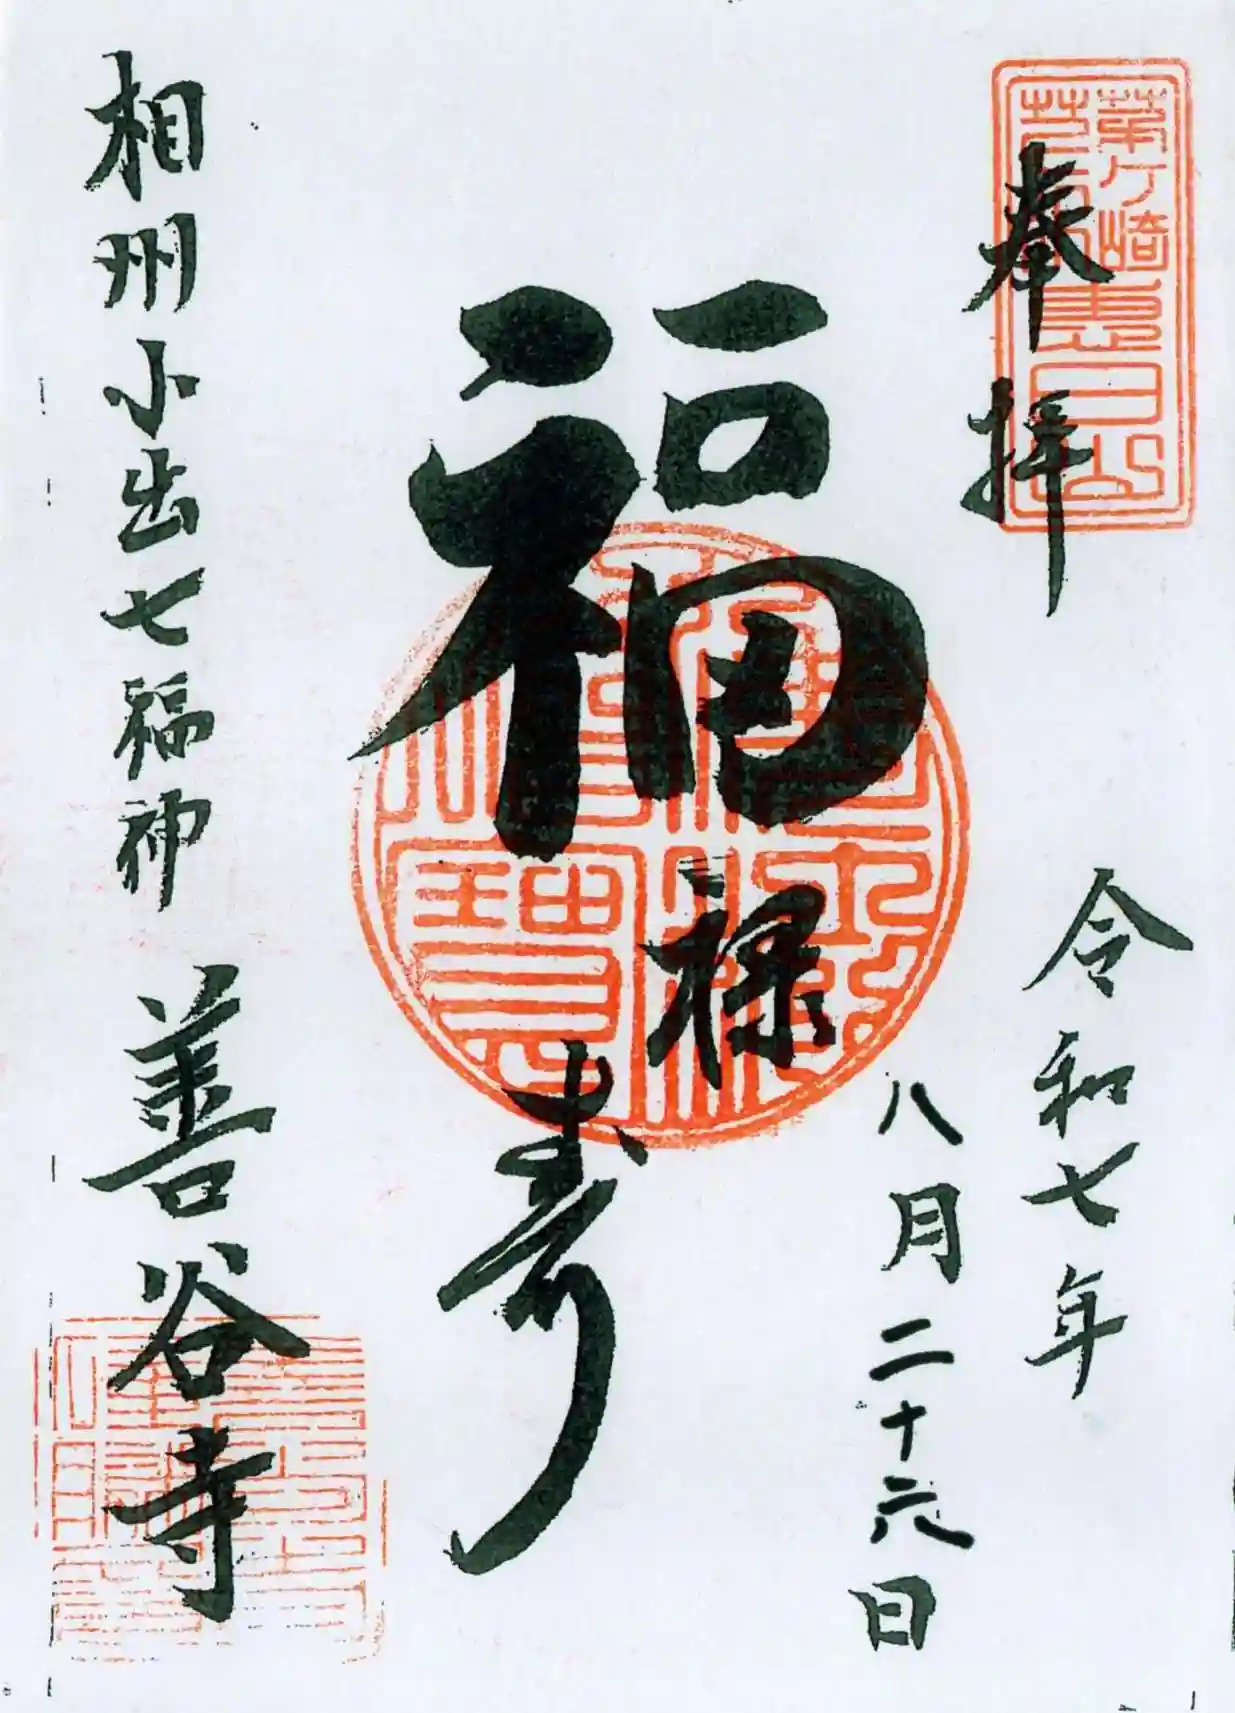 奉拝
令和七年
八月二十六日
福禄寿
相州小出七福神 善谷寺
茅ヶ崎